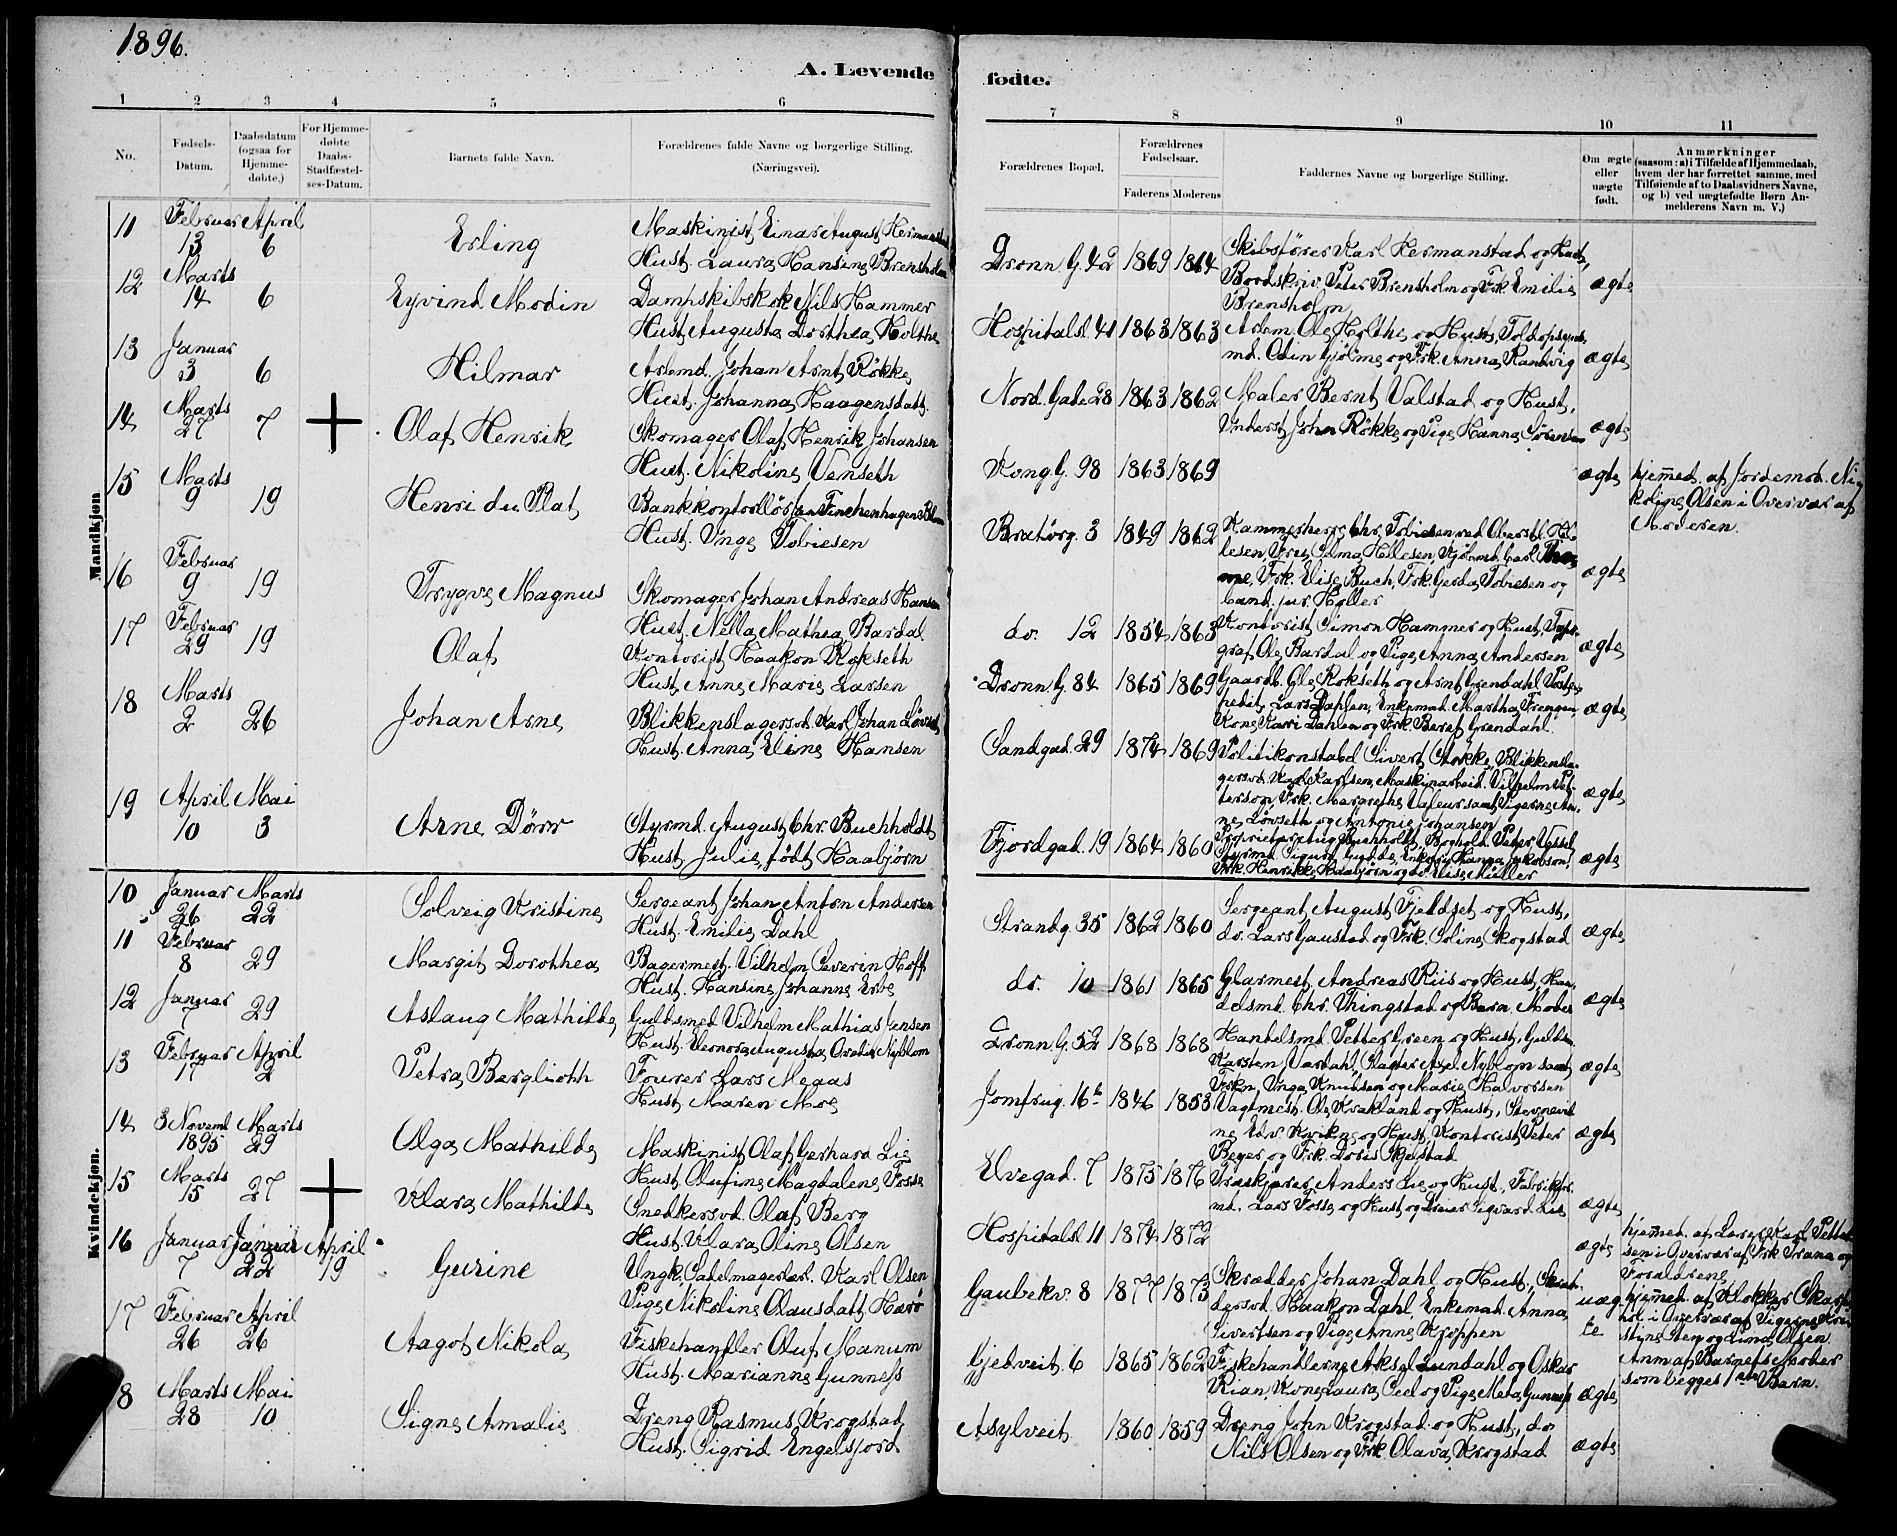 1896.
A. Levende fødte.
1 2 3 4 5 6 7 8 9 10 11
No.
Fødsels-Datum.
Daabsdatum (ogsaa for Hjemmedøbte.)
For Hjemmedøbte Daabs-Stadfæstelses-Datum.
Barnets fulde Navn.
Forældrenes fulde Navne og borgerlige Stilling. (Næringsvei).
Forældrenes Bopæl.
Forældrenes Fødselsaar.
Faderens Moderens
Faddernes Navne og borgerlige Stilling.
Om ægte eller uægte født.
Anmærkninger
(saasom: a) i Tilfælde af Hjemmedaab, hvem der har forrettet samme, med Tilføiende af to Daabsvidners Navne, og b) ved uægtefødte Børn Anmelderens Navn m. V.)
Mandkjøn
11 Februar 13 April 6 Erling
Maskinist Einar August Hermanstad
Hust. Laura Hansine Brensholm
Dronn. G. 42 1869 1864
Skibsfører Karl Hermanstad og Hust,
Bordskriv. Peter Brensholm og Frk Emilie
Brensholm
ægte
12 Marts 14 6 Eyvind Modin
Dampskibskok Nils Hammer
Hust Augusta Dorthea Holthe
Hospitalsl 41 1863 1863
Arbm. Ole Holthe og Hust, Toldopsyns
md. Odin Gjølme og Frk. Anna Ranbvig
ægte
13 Januar 3 6 Hilmar
Arbmd. Johan Arnt Røkke
Hust. Johanna Haagensdatt.
Nord. Gade 28 1863 1862
Maler Bernt Valstad og Hust,
Underst John Røkke og Pige Hanna Sørensen
ægte
14 Marts 27 7 + Olaf Henrik
Skomager Olaf Henrik Johansen
Hust. Nikoline Venseth
Kong. G. 98 1863 1869
ægte
hjemed. af Jordemod. Ni-
koline Olsen i Overvær af
Moderen.
15 Marts 9 19 Henri du Plat
Bankkontrollør Finchenhagen
Hust. Inga Tobiesen
Bratørg. 3 1849 1862
Kammerherre Chr. Tobiesen ved Oberstl. Hol-
lesen, Frue Selma Hollesen, Kjøbmd Carl
Frk. Elise Buch, Frk. Gerda Tobiesen og
Cand. jur. Høller
ægte
16 Februar 9 19 Trygve Magnus
Skomager Johan Andreas Hansen
Hust. Nella Mathea Bardal
do. 12 1854 1863
Kontorist Simon Hammer og Hust, Typo-
graf Ole Bardal og Pige Anna Andersen
ægte
17 Februar 29 19 Olaf
Kontorist Haakon Rokseth
Hust Anne Marie Larsen
Dronn. G. 84 1865 1869
Gaardb. Ole Rokseth og Arnt Grendahl Postex-
pedit. Lars Dahlen, Enkemad. Martha Frengen,
Kone Kari Dahlen og Frk Beret Grendahl.
ægte
18 Marts 2 26 Johan Arne
Blikkenslagersvd. Karl Johan Løvseth
Hust. Anna Eline Hansen
Sandgad. 29 1874 1869
Politikonstabel Sivert Stokke, Blikkensla-
gersvd. Karl Karlsen, Maskinarbeid. Vilhelm Pet-
terson, Frk. Margrethe Valeur samt Pigerne An-
ne Løvseth og Antonie Johansen
ægte
19 April 10 Mai 3 Arne Dørr
Styrmd. August Chr. Buchholdt
Hust. Julie født Haabjørn
Fjordgad. 19 1864 1860
Proprietær Aug. Buchholdt, Boghold. Peter Vessel,
Styrmd. Sigurd Lydde, Enkefru Hanna Jakobsen,
Frk. Henrikke Haabjørn og do Elise Müller
ægte
Kvindekjøn.
10 Januar 26 Marts 22 Solveig Kristine
Sergeant Johan Anton Andersen
Hust. Emilie Dahl
Strandg. 35 1862 1860
Sergeant August Fjeldset og Hust,
do. Lars Gaustad og Frk. Soline Skogstad
ægte
11 Februar 8 29 Margit Dorothea
Bagermest. Vilhelm Severin Hoff
Hust. Hansine Johanne Erbe
do. 10 1861 1865
Glarmest. Andreas Riis og Hust, Han-
delsmd. Chr. Thingstad og Barn. Moder
ægte
12 Januar 7 29 Aslaug Mathilde
Guldsmed Vilhelm Mathias Jensen
Hust. Eleonora Augusta Ovedia Nyblom
Dronn. G. 52 1868 1868
Handelsmd. Petter Green og Hust, Guldsm.
Karsten Værdahl, Slagter Axel Nyblom samt
Frkn. Inga Knudsen og Marie Halvorsen
ægte
13 Februar 17 April 2 Petra Bergliotth
Fourer Lars Megas
Hust. Maren Moe
Jomfrug. 16 b 1846 1853
Vagtmest. Ole Krakland og Hust, Stevnevid-
ne Edv. Kvikne og Hust, Kontorist Peter
Beger og Frk. Doris Skjelstad
ægte
14 3 Novemb 1895 Marts 29 Olga Mathilde
Maskinist Olaf Gerhard Lie
Hust Olufine Magdalene Fosse
Elvegad. 7 1875 1876
Træskjærer Anders Lie og Hust, Fabrikfor-
md. Lars Fosse og Hust og Dreier Sigvard Lie
ægte
15 Marts 15 27 + Klara Mathilde
Snedkersvd. Olaf Berg
Hust. Klara Oline Olsen
Hospitalsl 11 1874 1872
ægte
hjemed. af Lærer Karl Petter-
sen i Overvær af Frk Trana og
Forældrene
16 Januar 7 Januar 22 April 19 Gurine
Ungk. Sadelmagerlærl. Karl Olsen
Pige Nikoline Olausdatt. Harø
Gaubekv. 8 1877 1873
Skrædder Johan Dahl og Hust, Skræd-
dersvd. Haakon Dahl, Enkemad. Anna
Sivertsen og Pige Anne Kroppen
uægte
hjemed. af Klokker Skarp-
nol i Overvær af Pigerne Kri-
stine Berg og Lina Olsen.
Anm. af Barnets Moder
som begges 1ste Barn.
17 Februar 26 April 26 Aagot Nikola
Fiskehandler Oluf Manum
Hust. Marianne Gunness
Gjetveit. 6 1865 1862
Fiskehandlerne Aksel Lundahl og Oskar
Rian, Kone Laura Ceel og Pige Meta Gunness
ægte
18 Marts 28 Mai 10 Signe Amalie
Dreng Rasmus Krogstad
Hust. Sigrid Engelsjord
Asylveit. 1860 1859
Dreng John Krogstad og Hust, do
Nils Olsen og Frk. Olava Krogstad
ægte